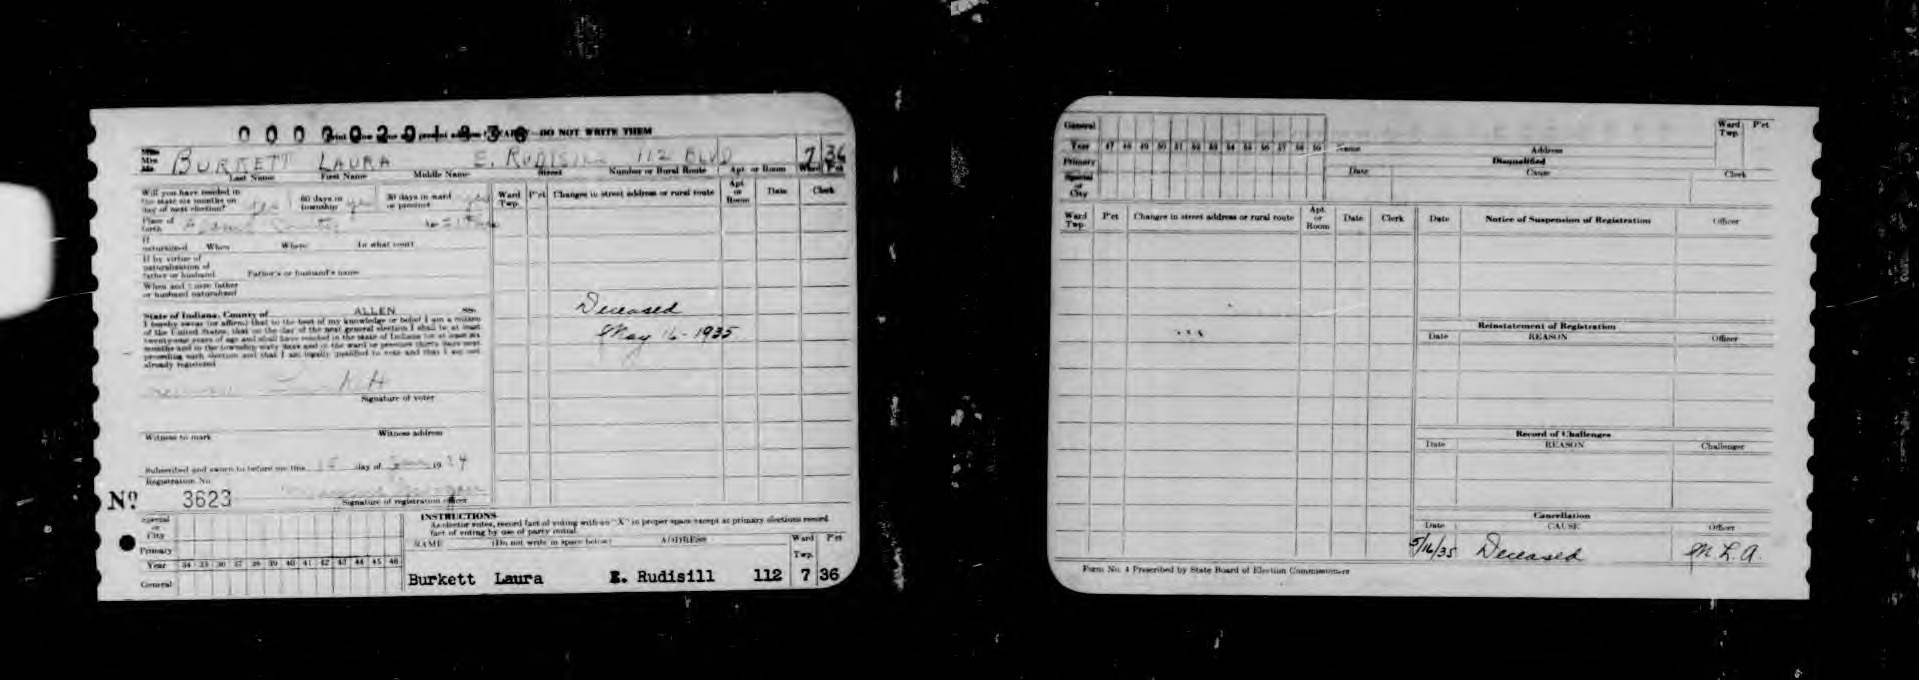 DO NOT WRITE THEM
Miss
Mrs
Mr.
BURKETT LAURA E. RUDISILL 112 BLVD 7 36
Last Name First Name Middle Name Street Number or Rural Route Apt. or Room Ward Pct
Will you have resided in the state six months on day of next election? yes 60 days in township yes 30 days in ward or precinct yes
Place of birth
If naturalized When Where In what court
If by virtue of naturalization of father or husband Father's or husband's name
When and where father or husband naturalized
State of Indiana, County of ALLEN ss.
I hereby swear (or affirm) that to the best of my knowledge or belief I am a citizen
of the United States, that on the day of the next general election I shall be at least
twenty-one years of age and shall have resided in the state of Indiana for at least six
months and in the township sixty days and in the ward or precinct thirty days next
preceding such election and that I am legally qualified to vote and that I am not
already registered
Signature of voter
Witness to mark Witness address
Subscribed and sworn to before me this 15 day of 19 34
Registration No.
Nº 3623 Signature of registration officer
Ward Twp. P'ct Changes in street address or rural route Apt. or Room Date Clerk
Deceased
May 16-1935
Special or City
Primary
Year 34 35 36 37 38 39 40 41 42 43 44 45 46
General
INSTRUCTIONS
As elector votes, record fact of voting with an "X" in proper space except at primary elections record
fact of voting by use of party initial.
NAME (Do not write in space below) ADDRESS Ward Twp. P'ct
Burkett Laura E. Rudisill 112 7 36
General
Year 47 48 49 50 51 52 53 54 55 56 57 58 59
Primary
Special or City
Name Address Ward Twp. P'ct
Disqualified
Date Cause Clerk
Ward Twp. P'ct Changes in street address or rural route Apt. or Room Date Clerk
Date Notice of Suspension of Registration Officer
Reinstatement of Registration
Date REASON Officer
Record of Challenges
Date REASON Challenger
Cancellation
Date CAUSE Officer
5/16/35 Deceased M. L. A.
Form No. 4 Prescribed by State Board of Election Commissioners